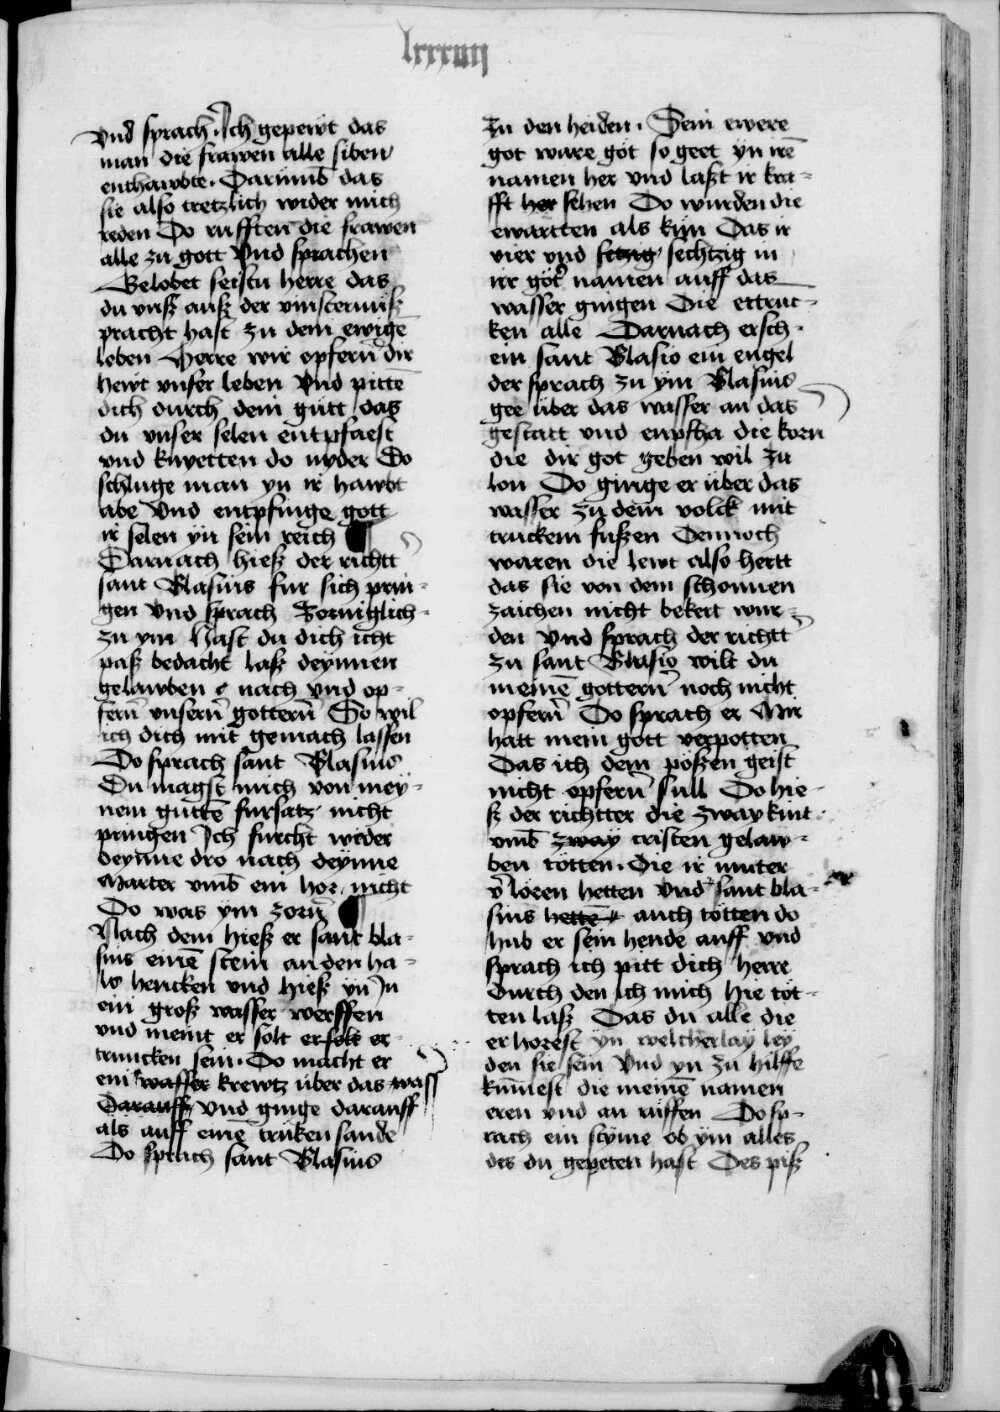 lxxxiiij
vnd sprach Ich gepewt das
man die frawen alle siben
enthawbte. Darumb das
sie also tretzlich wider mich
reden Do rufften die frawen
alle zu gott Vnd sprachen
Gelobet seistu herre das
du vnß auß der vinsternuß
pracht hast zu dem ewigē
leben Herre wir opfern dir
hewt vnser leben Vnd pittē
dich durch dein gütt das
du vnser selen entpfaest
vnd knyetten do nyder Do
schluge man yn ir hawbt
abe Vnd entpfinge gott
ir selen yn sein reich
Darnach hieß der richtt
sant Blasius fur sich prin-
gen Vnd sprach Zorniglich
zu ym Hast du dich icht
paß bedacht laß deynnen
gelawben nach vnd op-
fern vnsern gottern So wil
ich dich mit gemach lassen
Do sprach sant Blasius
Du magst mich von mey-
nem guttē fursatz nicht
pringen Ich furcht weder
deynne dro nach deynne
Marter vmb ein hor nicht
Do was ym zorn
Nach dem hieß er sant bla-
sius einē stein an den ha-
ls hencken vnd hieß yn In
ein groß wasser werffen
vnd meint er solt ersolt er-
truncken sein. Do macht er
ein wasser krewtz über das wass
darauff Vnd ginge darauff
als auff einē truken sande
Do sprach sant Blasius
zu den heiden. Sein ewere
got ware got so geet yn irē
namen her vnd laßt ir kra-
fft her sehen Do wurden die
ewartten als kün Das ir
vier vnd sechtzig in
irr got namen auff das
wasser gingen Die ertrun-
ken alle Darnach ersch-
ein sant Blasio ein engel
der sprach zu ym Blasius
gee über das wasser an das
gestatt vnd enpfha die kron
die dir got geben wil zu
lon Do ginge er über das
wasser zu dem volck mit
truckem fußen Dennoch
waren die lewt also hertt
das sie von dem schonnen
zaichen nicht bekert wur-
den Vnd sprach der richtt
zu sant Blasio wilt du
meinē gottern noch nicht
opfern Do sprach er Mir
hatt mein gott verpotten
Das ich dem pößen geist
nicht opfern sull Do hie-
ß der richtter die zway kint
vmb zway cristen gelaw-
ben totten. die ir muter
v̉loren hetten Vnd sant bla-
sius hettē auch totten do
hub er sein hende auff vnd
sprach ich pitt dich herre
durch den ich mich hie tot-
ten laß Das du alle die
er horest yn welcherlay ley
den sie sein Vnd yn zu hilffe
kum̄est die meinē namen
eren vnd an ruffen Do sp-
rach ein stȳme ob ym alles
des du gepeten hast Des piß